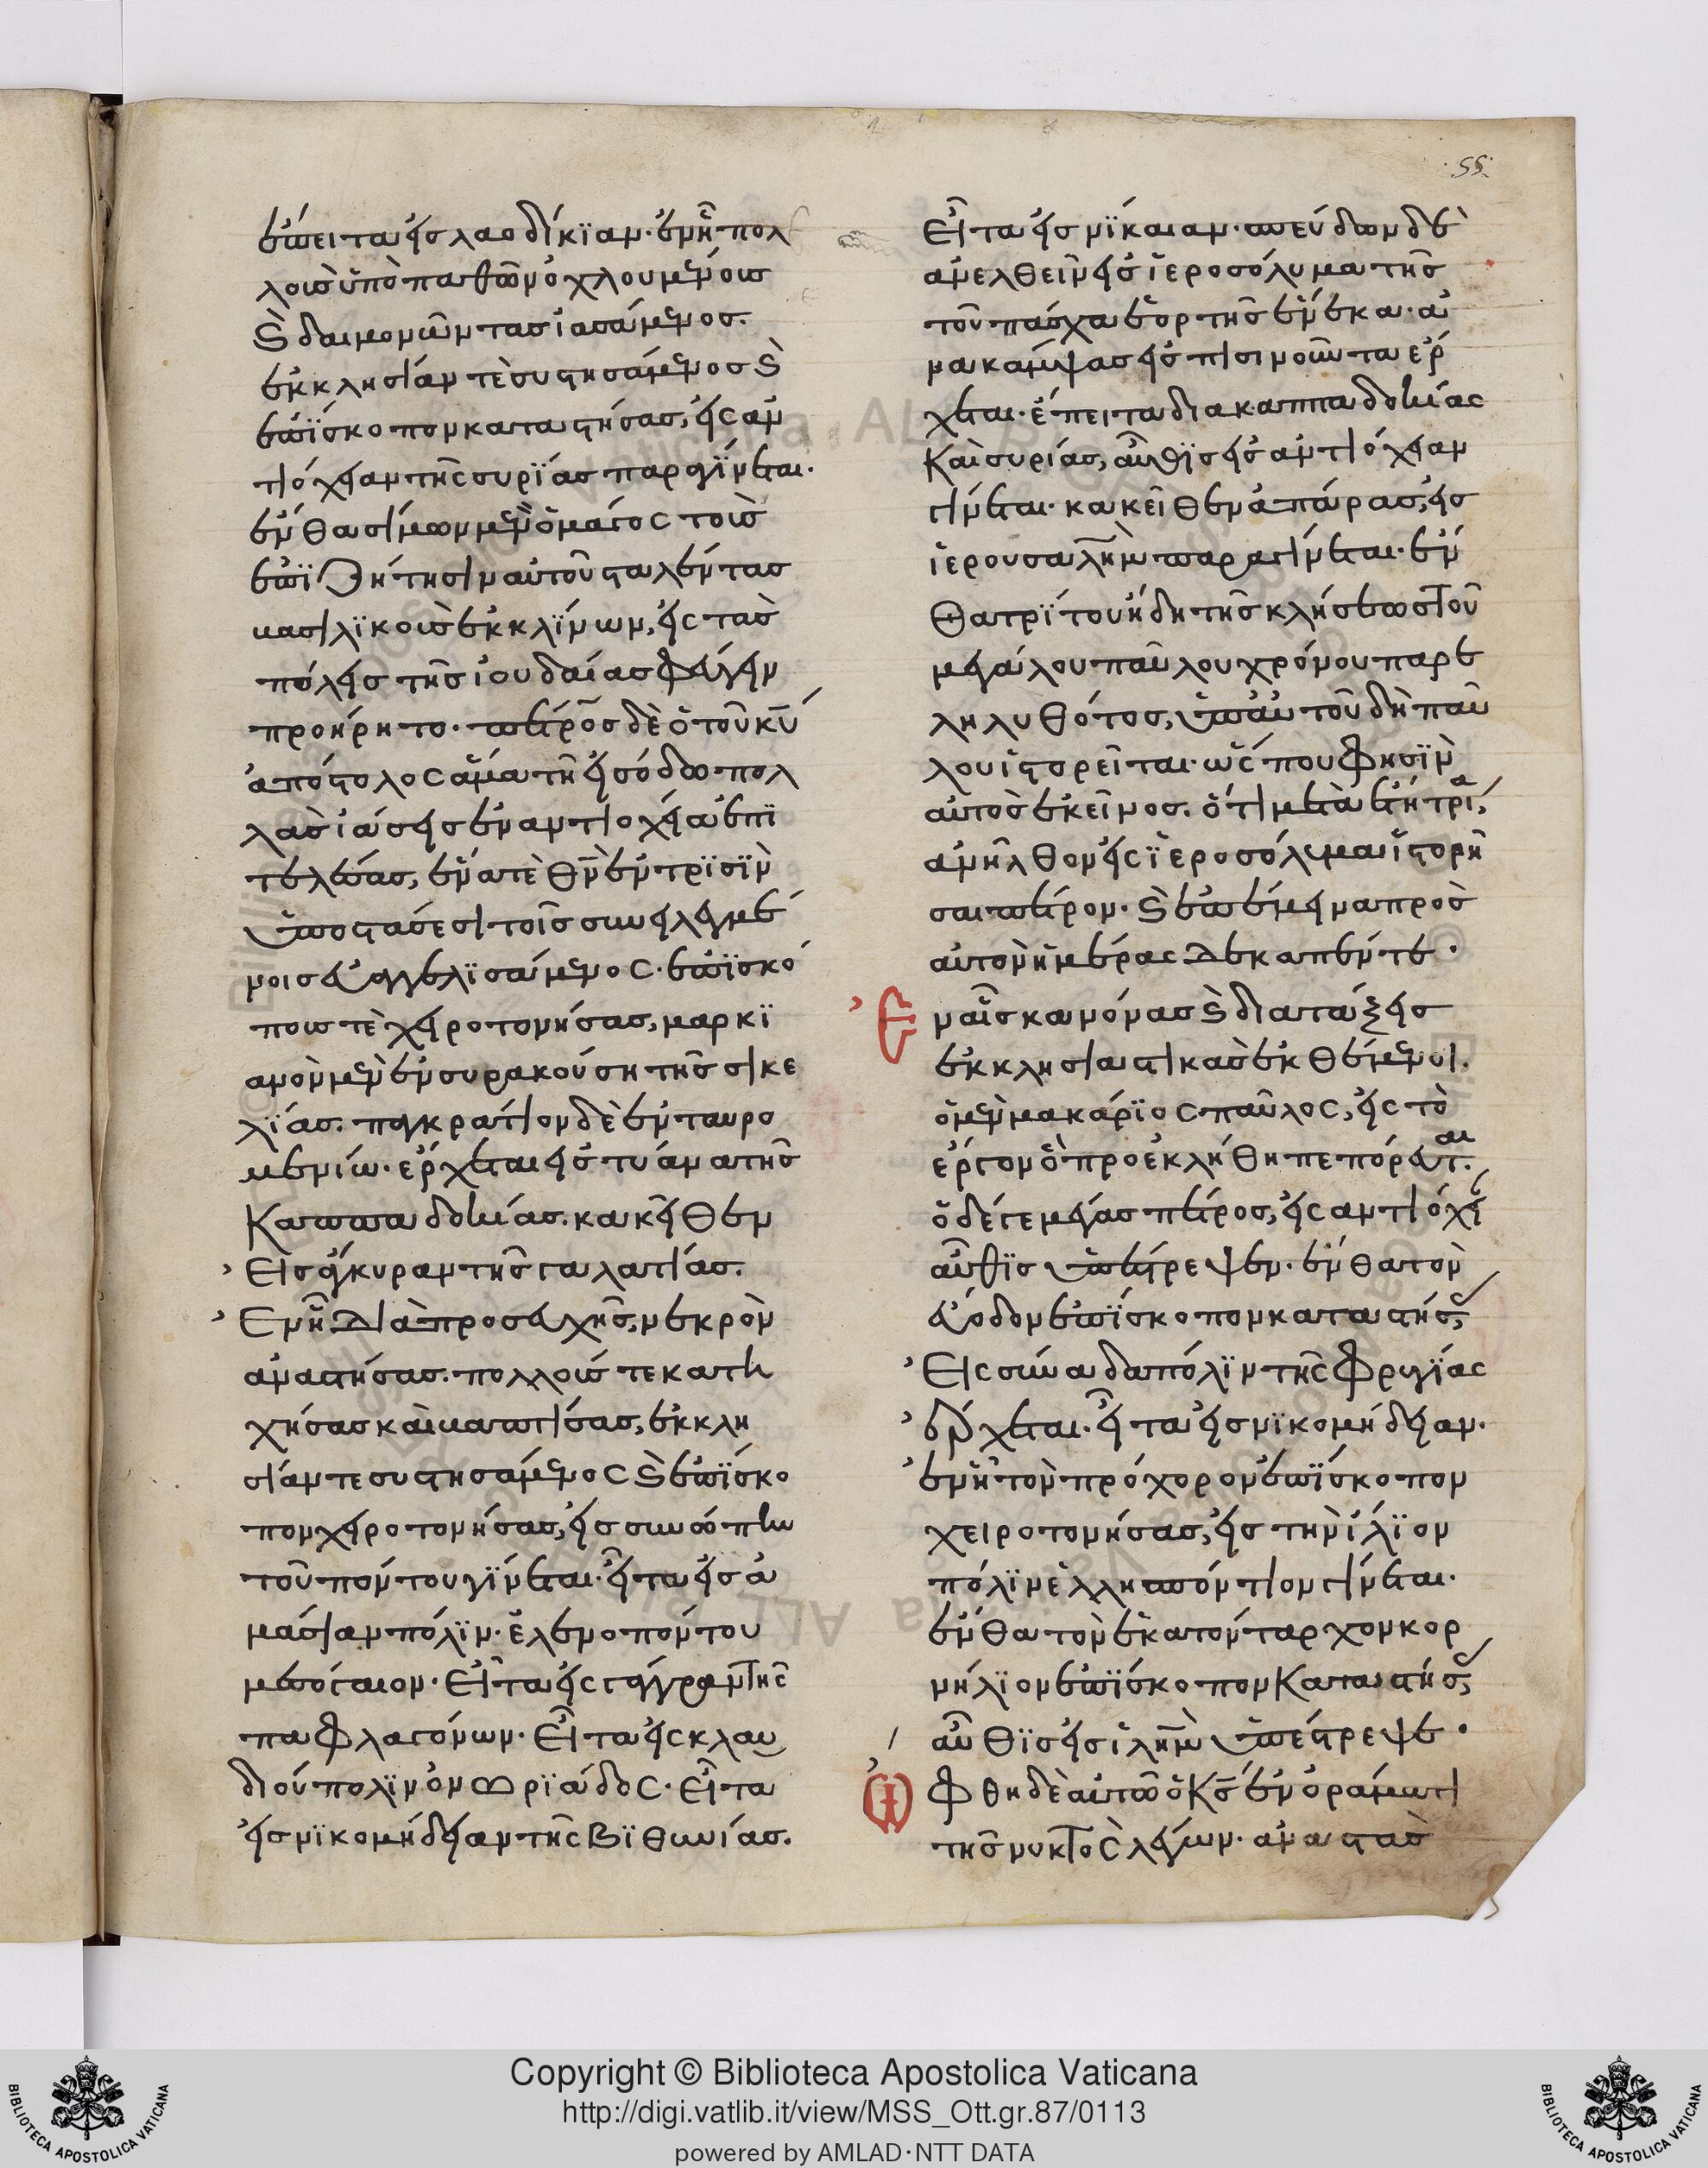 55.
ἔπειτα εἰς λαοδίκϊαν· ἐν ἧ πολ
λοὺς ὑπὸ παθῶν ὀχλουμένους
καὶ δαιμονῶντας ἰασάμενος.
ἐκκλησίαν τὲ συστησάμενος καὶ
ἐπΐσκοπον καταστήσας, εἰς ἀν
τιόχειαν τῆς συρΐας παραγΐνεται.
ἔνθα σίμων μὲν ὁ μάγος τοὺς
ἐπϊζητήσιν αὐτοῦ σταλέντας
πόλεις τῆς ἰουδαίας φεύγειν
προήρητο. πέτρος δὲ ὁ τοῦ κυ
ἀπόστολος ἅμα τῆ εἰσόδω πολ
λὰς ἰάσεις ἐν ἀντιοχεία ἐπϊ
τελέσας, ἕνα τὲ θν ἐν τρϊσῒν
ὑποστάσεσι τοῖς συνειλεγμέ
νοις εὐαγγελϊσάμενος. ἐπϊσκό
πους τὲ χειροτονήσας, μαρκϊ
ανὸν μὲν ἐν συρακούση τῆς σικε
λΐας. παγκράτιον δὲ ἐν ταυρο
μενίω. ἔρχεται εἰς τύανα τῆς
Καππαδοκίας. κακεῖθεν
Εἰς ἄγκυραν τῆς γαλατίας.
Ἐν ἧ διὰ προσευχῆς, νεκρὸν
ἀναστήσας. πολλούς τε κατη
χήσας καὶ βαπτίσας, ἐκκλη
σίαν τε συστησάμενος καὶ ἐπΐσκο
πον χειροτονήσας, εἰς συνώπην
τοῦ πόντου γΐνεται. εἶτα εἰς ἀ
μάσιαν πόλϊν. ἑλενοπόντου
μεσόγαιον. Εἶτα εἰς γάγγραν τῆς
παφλαγόνων. Εἶτα εἰς κλαυ
διούπολϊν ὀνωρϊάδος. Εἶτα
εἰς νϊκομήδειαν τῆς Βϊθυνίας.
Εἶτα εἰς νΐκαιαν. σπεύδων δὲ
ἀνελθεῖν εἰς ἱεροσόλυμα τῆς
τοῦ πάσχα ἑορτῆς ἕνεκα. ἀ
νακάμψας εἰς πισινοῦντα ἔρ
χεται. ἔπειτα διὰ καππαδοκίας
Καὶ συρίας, αὖθϊς εἰς ἀντιόχειαν
γίνεται. κακεῖθεν ἀπάρας, εἰς
ἱερουσαλὴμ παραγίνεται. ἔν
θα τρΐτου ἤδη τῆς κλήσεως τοῦ
μεγάλου παύλου χρόνου παρε
ληλυθότος, ὑπ' αὐτοῦ δὴ παύ
λου ἱστορεῖται. ὥς πού φησϊν
αὐτὸς ἐκεῖνος. ὅτι μετὰ ἔτη τρία,
ἀνῆλθον εἰς ϊεροσόλυμα ἱστορῆ
σαι πέτρον. καὶ ἐπέμεινα πρὸς
αὐτὸν ἡμέρας δεκαπέντε.
Ἐν αἷς κανόνας καὶ διατάξεις
ἐκκλησιαστικὰς ἐκθέμενοι.
ὁ μὲν μακάρϊος παῦλος, εἰς τὸ
ἔργον ὃ προεκλήθη πεπόρευται.
ὁ δέ γε μέγας πέτρος, εἰς ἀντιόχει
αὖθϊς ὑπέστρεψεν. ἔνθα τὸν
εὔοδον ἐπΐσκοπον καταστήσας,
Εἰς σύναδα πόλϊν τῆς φρυγίας
ἔρχεται. εἶτα εἰς νϊκομήδειαν.
ἐν ἧ τὸν πρόχορον ἐπΐσκοπον
χειροτονήσας, εἰς τὴν ἴλϊον
πόλϊν ἑλλησπόντιον γίνεται.
ἔνθα τὸν ἑκατόνταρχον κορ
νήλϊον ἐπΐσκοπον Καταστήσας,
αὖθϊς εἰς ἱλὴμ ὑπέστρεψε.
Ὤφθη δὲ αὐτῶ ὁ Κς ἐν ὁράματι
τῆς νυκτὸς λέγων. ἀναστὰς
Copyright © Biblioteca Apostolica Vaticana
http://digi.vatlib.it/view/MSS_Ott.gr.87/0113
powered by AMLAD·NTT DATA
BIBLIOTECA APOSTOLICA VATICANA
BIBLIOTECA APOSTOLICA VATICANA